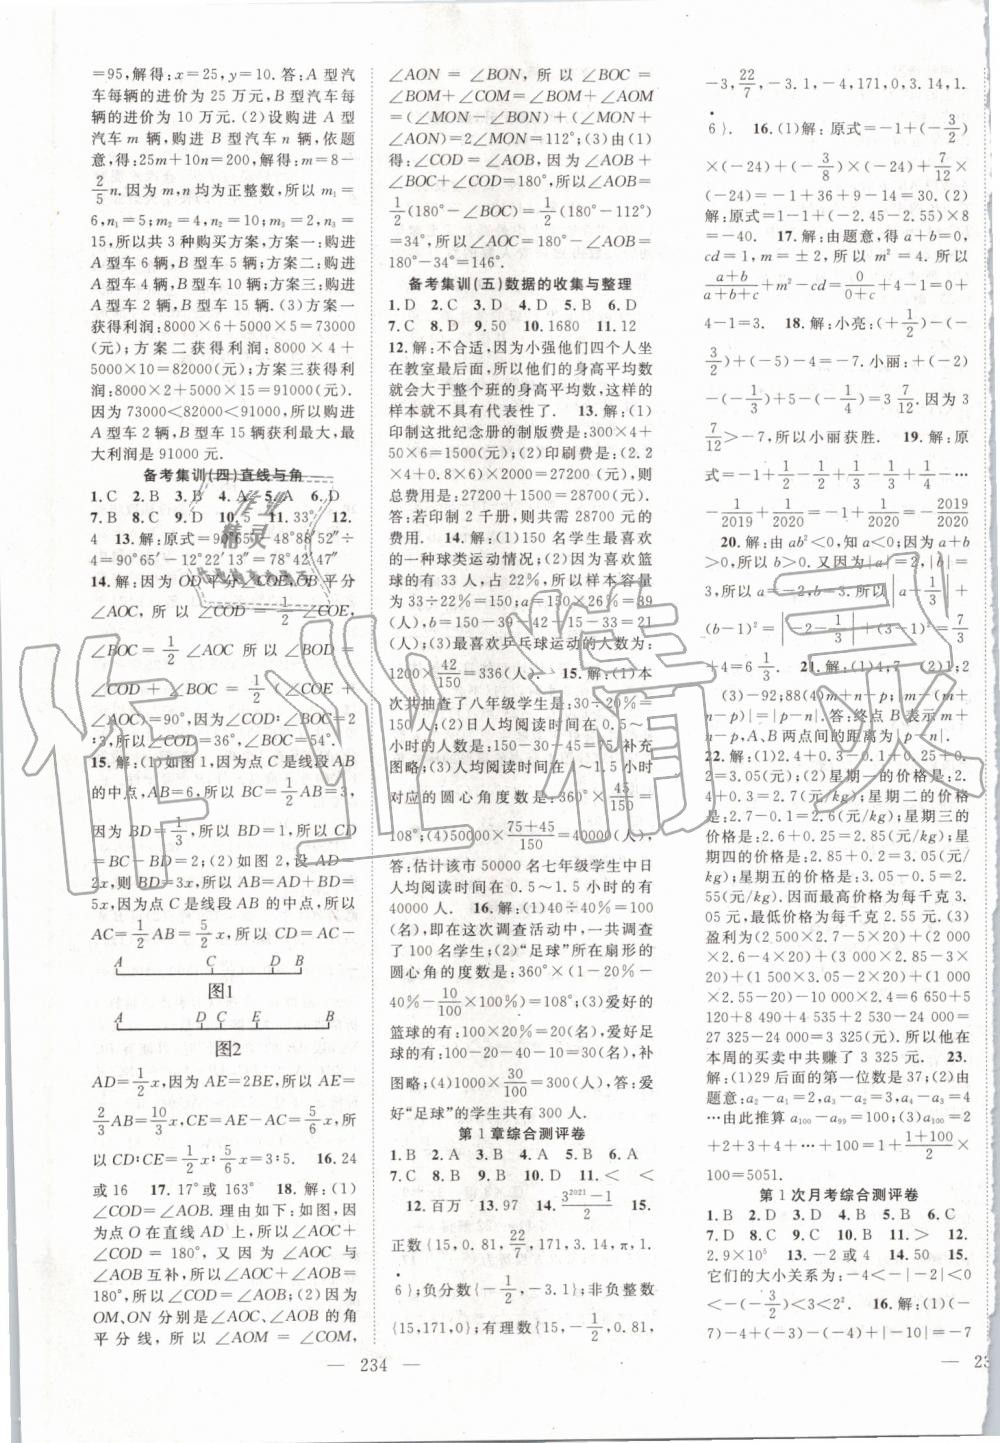 =95,解得:x=25,y=10.答:A型汽
车每辆的进价为 25 万元,B型汽车每
辆的进价为 10 万元.(2)设购进 A 型
汽车 m 辆,购进 B 型汽车 n 辆,依题
意,得:25m+10n=200,解得:m=8-
2/5 n.因为 m,n 均为正整数,所以 m₁=
6,n₁=5;m₂=4,n₂=10;m₃=2,n₃=
15,所以共 3 种购买方案,方案一:购进
A 型车 6 辆,B 型车 5 辆;方案二:购进
A型车4辆,B型车10辆;方案三:购进
A 型车 2 辆,B 型车 15 辆.(3)方案一
获得利润:8000×6+5000×5=73000
(元);方案二获得利润:8000×4+
5000×10=82000(元);方案三获得利
润:8000×2+5000×15=91000(元).
因为 73000<82000<91000,所以购进
A 型车 2 辆,B 型车 15 辆获利最大,最
大利润是 91000 元.
备考集训(四)直线与角
1.C 2.B 3.B 4.A 5.A 6.D
7.B 8.D 9.D 10.5 11.33° 12.
4 13.解:原式=90°65′-48°88′52″÷
4=90°65′-12°22′13″=78°42′47″
14.解:因为 OD 平分∠COE,OB 平分
∠AOC,所以∠COD=1/2∠COE,
∠BOC=1/2∠AOC,所以∠BOD=
∠COD+∠BOC=1/2(∠COE+
∠AOC)=90°,因为∠COD∶∠BOC=2
∶3,所以∠COD=36°,∠BOC=54°.
15.解:(1)如图 1,因为点 C 是线段 AB
的中点,AB=6,所以 BC=1/2AB=3,
因为 BD=1/3,所以BD=1,所以 CD
=BC-BD=2;(2)如图 2,设 AD=
2x,则 BD=3x,所以 AB=AD+BD=
5x,因为点 C 是线段 AB 的中点,所以
AC=1/2AB=5/2x,所以 CD=AC-
A C D B
图1
A D C E B
图2
AD=1/2x,因为 AE=2BE,所以 AE=
2/3AB=10/3x,CE=AE-AC=5/6x,所
以 CD∶CE=1/2x∶5/6x=3∶5. 16.24
或16 17.17°或 163° 18.解:(1)
∠COD=∠AOB.理由如下:如图,因
为点 O 在直线 AD 上,所以∠AOC+
∠COD=180°,又因为∠AOC 与
∠AOB 互补,所以∠AOC+∠AOB=
180°,所以∠COD=∠AOB;(2)因为
OM,ON 分别是∠AOC,∠AOB 的角
平分线,所以∠AOM=∠COM,
∠AON=∠BON,所以∠BOC=
∠BOM+∠COM=∠BOM+∠AOM
=(∠MON-∠BON)+(∠MON+
∠AON)=2∠MON=112°;(3)由(1)
得:∠COD=∠AOB,因为∠AOB+
∠BOC+∠COD=180°,所以∠AOB=
1/2(180°-∠BOC)=1/2(180°-112°)
=34°,所以∠AOC=180°-∠AOB=
180°-34°=146°.
备考集训(五)数据的收集与整理
1.D 2.C 3.D 4.D 5.B 6.D
7.C 8.D 9.50 10.1680 11.12
12.解:不合适,因为小强他们四个人坐
在教室最后面,所以他们的身高平均数
就会大于整个班的身高平均数,这样的
样本就不具有代表性了. 13.解:(1)
印制这批纪念册的制版费是:300×4+
50×6=1500(元);(2)印刷费是:(2.2
×4+0.7×6)×2000=26000(元),则
总费用是:27200+1500=28700(元).
答:若印制 2 千册,则共需 28700 元的
费用. 14.解:(1)150 名学生最喜欢
的一种球类运动情况;(2)因为喜欢篮
球的有 33 人,占 22%,所以样本容量
为 33÷22%=150,a=150×26%=39
(人),b=150-39-42-15-33=21
(人);(3)最喜欢乒乓球运动的人数为:
1200×42/150=336(人). 15.解:(1)本
次共抽查了八年级学生是:30÷20%=
150(人);(2)日人均阅读时间在 0.5~1
小时的人数是:150-30-45=75,补充
图略;(3)人均阅读时间在 1~1.5 小时
对应的圆心角度数是:360°×45/150=
108°;(4)50000×(75+45)/150=40000(人),
答:估计该市 50000 名七年级学生中日
人均阅读时间在 0.5~1.5 小时的有
40000 人. 16.解:(1)40÷40%=100
(名),即在这次调查活动中,一共调查了
100 名学生;(2)“足球”所在扇形的
圆心角的度数是:360°×(1-20%-
40%-10/100×100%)=108°;(3)爱好的
篮球的有:100×20%=20,爱好足球的
有:100-20-40-10=30(名),补
图略;(4)1000×30/100=300(人),答:爱
好“足球”的学生共有 300 人.
第 1 章综合测评卷
1.B 2.A 3.B 4.A 5.B 6.A
7.C 8.B 9.B 10.D 11.< <
12.百万 13.97 14.(3²⁰²¹-1)/2 15.
正数{15,0.81,22/7,171,3.14,π,1.
6̇};负分数{-1/2,-3.1};非负整数
{15,171,0};有理数{15,-1/2,0.81,
-3,22/7,-3.1,-4,171,0,3.14,1.
6̇}. 16.(1)解:原式=-1+(-3/2)
×(-24)+(-3/8)×(-24)+7/12×
(-24)=-1+36+9-14=30.(2)
解:原式=1-1+(-2.45-2.55)×8
=-40. 17.解:由题意,得 a+b=0,
cd=1,m=±2,所以 m²=4.所以
(a+b)/(a+b+c)+m²-cd=0/(0+c)+4-1=0+
4-1=3. 18.解:小亮:(+1/2)-(-
3/2)+(-5)-4=-7.小丽:+2/3-(-
1/3)+5-(-7/12)=3 7/12.因为 3
7/12>-7,所以小丽获胜. 19.解:原
式=-1+1/2-1/2+1/3-1/3+1/4-…
-1/2019+1/2020=-1+1/2020=-2019/2020
20.解:由 ab²<0,得 a<0;由a+b>0,
所以 b>0.又因为|a|=2,|b|=
3,所以 a=-2,b=3.所以|a-1/3|+
(b-1)²=|-2-1/3|+(3-1)²=2 1/3
+4=6 1/3. 21.解:(1)4;7 (2)1;2
(3)-92;88(4)m+n-p;|m-(m+
n-p)|=|p-n|.答:终点 B 表示 m+
n-p,A、B 两点间的距离为|p-n|.
22.解:(1)2.4+0.3-0.1+0.25+0.
2=3(元);(2)星期一的价格是:
2.4+0.3=2.7(元/kg);星期二的价格
是:2.7-0.1=2.6(元/kg);星期三的
价格是:2.6+0.25=2.85(元/kg);星
期四的价格是:2.85+0.2=3.05(元/kg);
星期五的价格是:3.05-0.5=
2.55(元/kg).因而最高价格为每千克 3.
05 元,最低价格为每千克 2.55 元.(3)
盈利为(2 500×2.7-5×20)+(2 000
×2.6-4×20)+(3 000×2.85-3×
20)+(1 500×3.05-2×20)+(1 000
×2.55-20)-10 000×2.4=6 650+5
120+8 490+4 535+2 530-24 000=
27 325-24 000=3 325(元).所以他在
本周的买卖中共赚了 3 325 元. 23.
解:(1)29 后面的第一位数是 37;(2)由
题意:a₂-a₁=2,a₃-a₂=3,a₄-a₃=4
…由此推算 a₁₀₀-a₉₉=100;(3)a₁₀₀=
2+2+3+4+…+100=1+(1+100)/2×
100=5051.
第 1 次月考综合测评卷
1.B 2.D 3.D 4.B 5.B 6.C
7.D 8.B 9.A 10.C 11.> 12.
2.9×10⁵ 13.-2或4 14.50 15.
它们的大小关系为:-4<-|-2|<0
<-(-3/2)<3<2². 16.解:(1)原式=
(-7)-4+(-4)-4+|-10|=-7
— 234 —